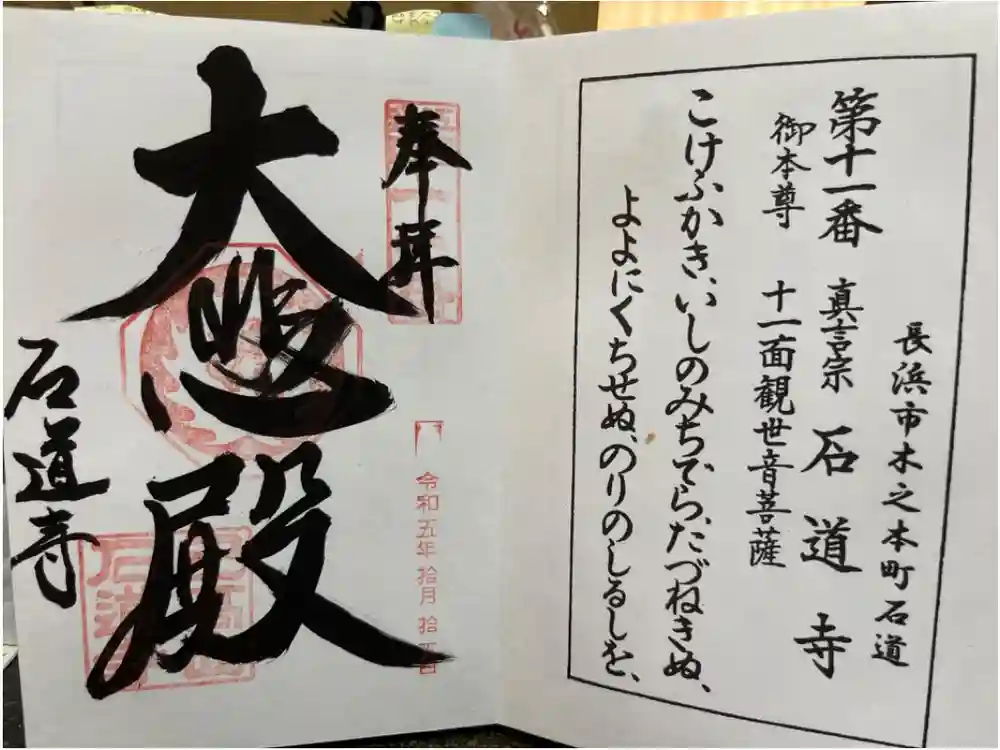 長浜市木之本町石道
第十一番 真言宗 石道寺
御本尊 十一面観世音菩薩
こけふかき、いしのみちでら、たづねきぬ、
よよにくちせぬ、のりのしるしを、
奉拝
令和五年拾月
大悲殿
石道寺